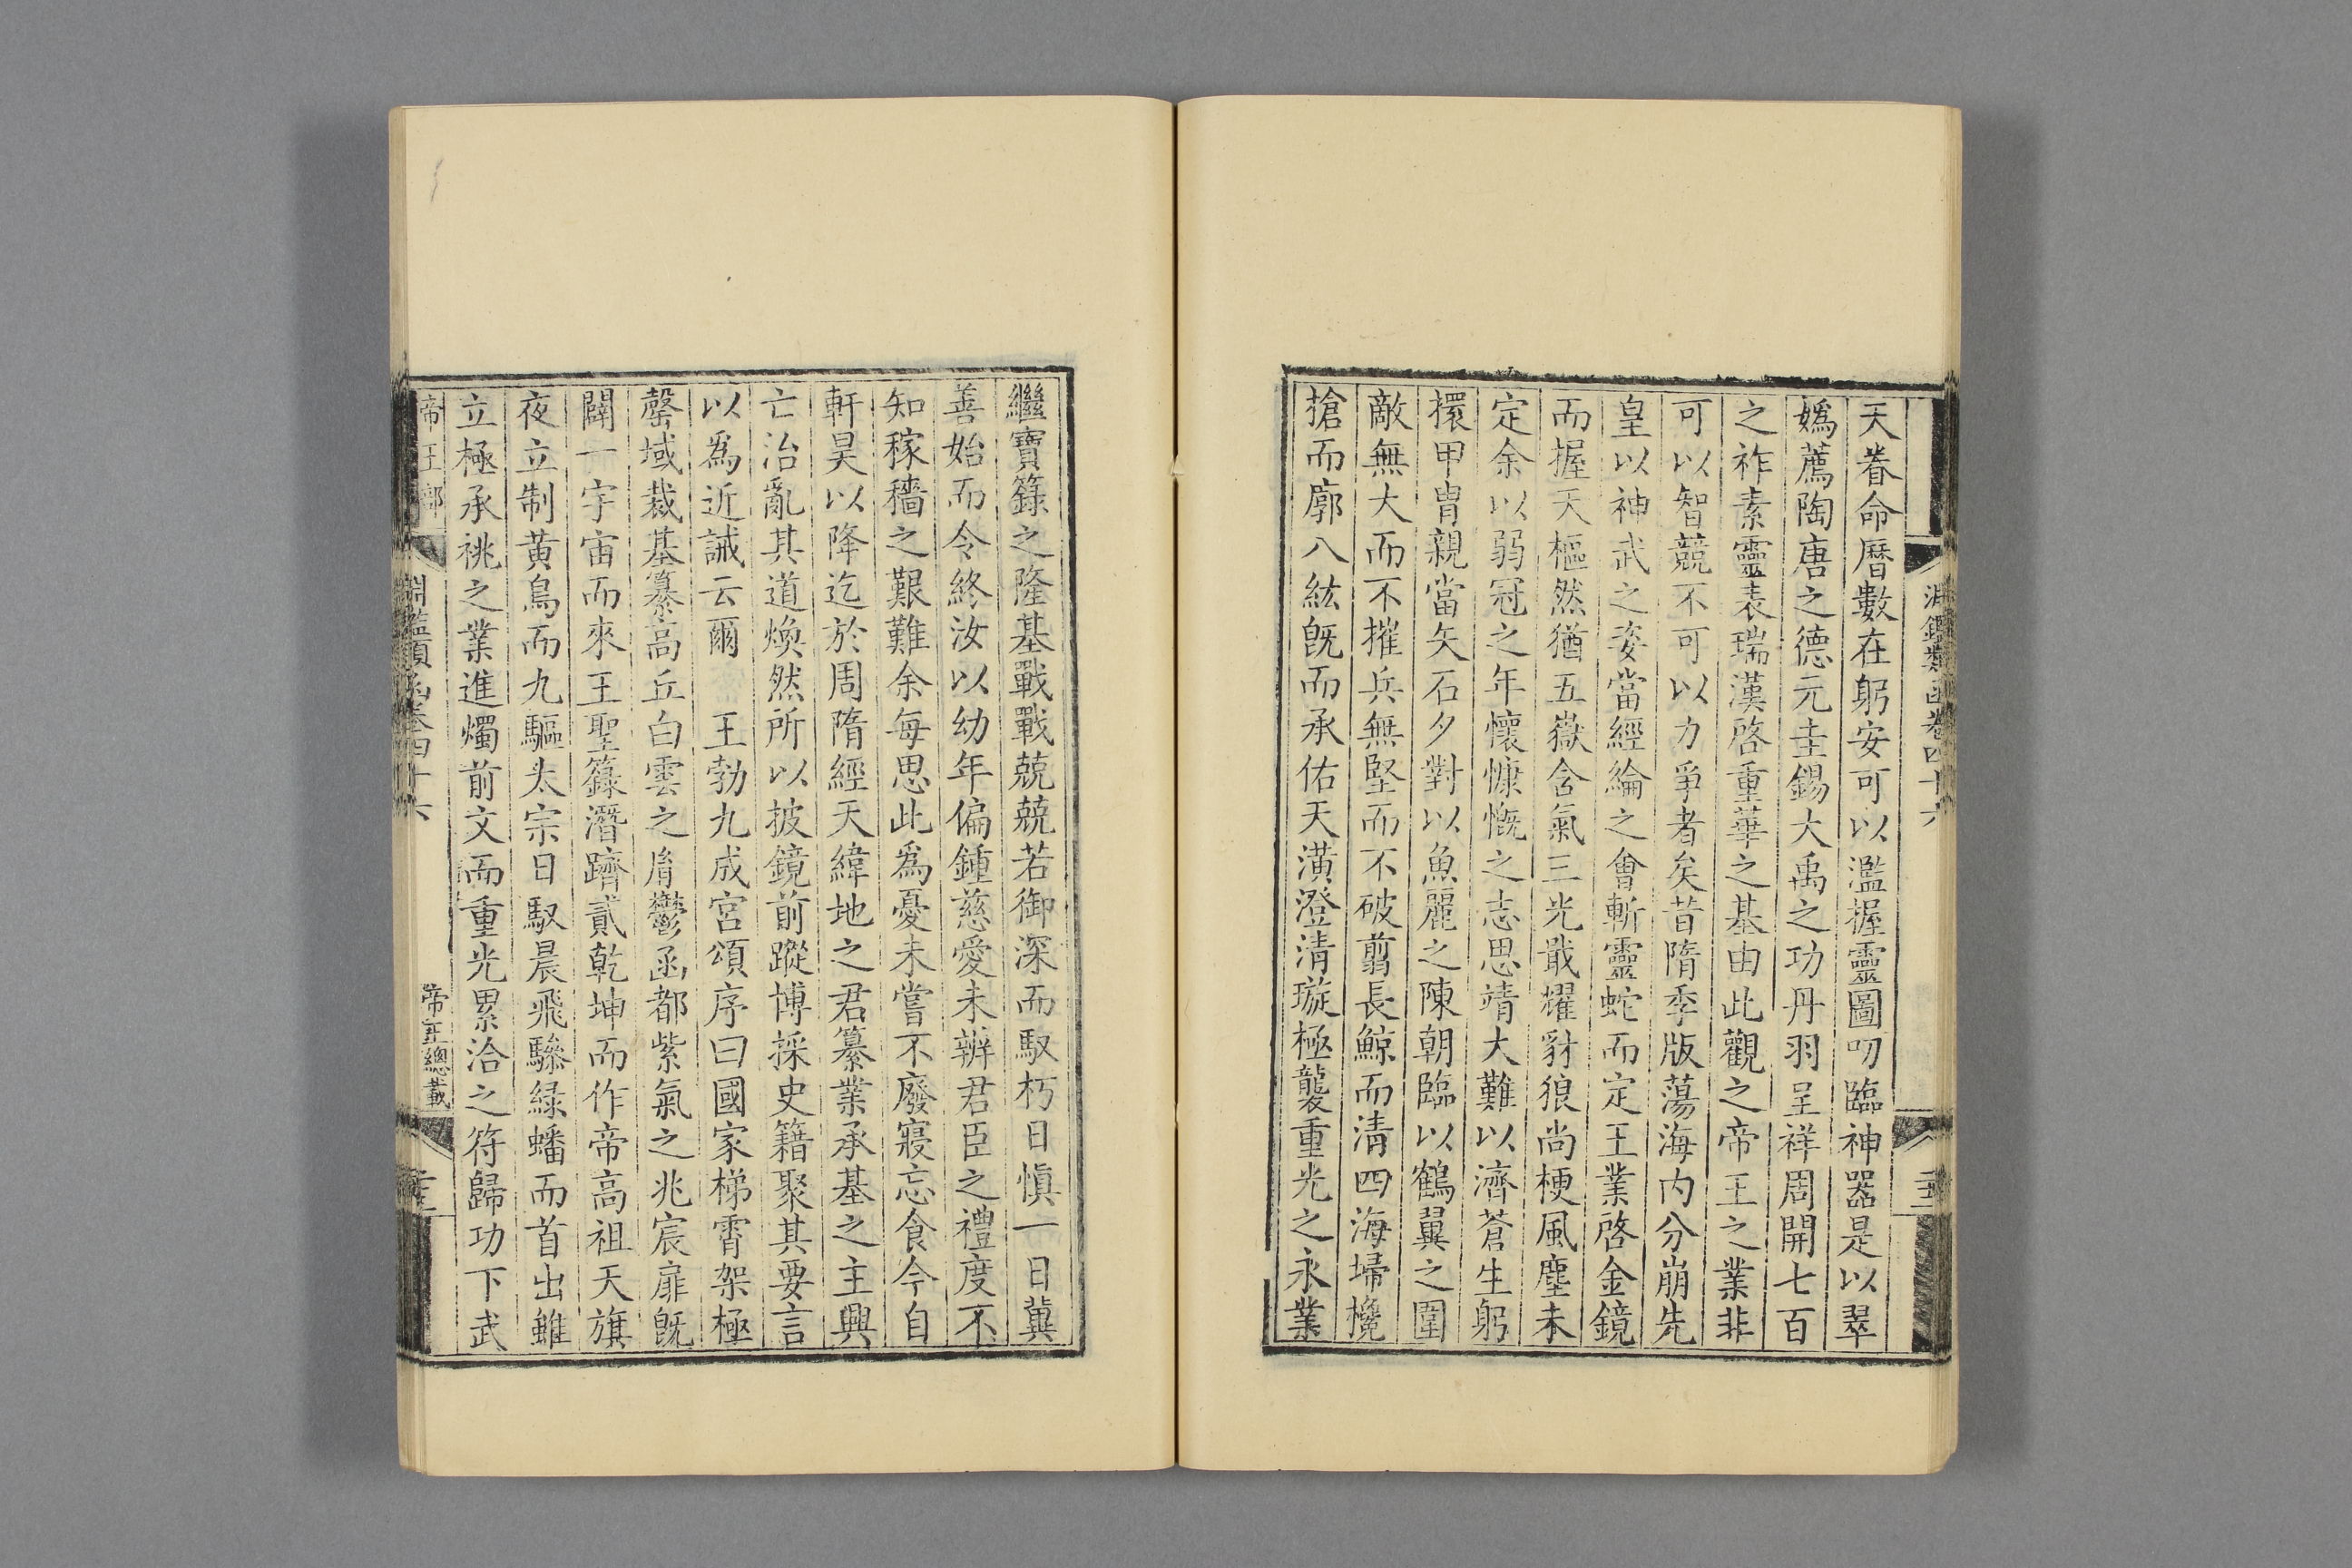 天眷命曆數在躬安可以濫握靈圖叨臨神器是以翠
媯薦陶唐之德元圭錫大禹之功丹羽呈祥周開七百
之祚素靈表瑞漢啓重華之基由此觀之帝王之業非
可以智競不可以力爭者矣昔隋季版蕩海内分崩先
皇以神武之姿當經綸之會斬靈蛇而定王業啓金鏡
而握天樞然猶五嶽含氣三光戢耀豺狼尚梗風塵未
定余以弱冠之年懷慷慨之志思靖大難以濟蒼生躬
擐甲冑親當矢石夕對以魚麗之陳朝臨以鶴翼之圍
敵無大而不摧兵無堅而不破翦長鯨而清四海埽欃
搶而廓八紘旣而承佑天潢澄清璇極襲重光之永業
繼寶籙之隆基戰戰兢兢若御深而馭朽日愼一日冀
善始而令終汝以幼年偏鍾慈愛未辨君臣之禮度不
知稼穡之艱難余每思此爲憂未嘗不廢寢忘食今自
軒昊以降迄於周隋經天緯地之君纂業承基之主興
亡治亂其道煥然所以披鏡前蹤博採史籍聚其要言
以爲近誡云爾　王勃九成宮頌序曰國家梯霄架極
罄域裁基纂高丘白雲之胄鬱函都紫氣之兆宸扉旣
闢一宇宙而來王聖籙潛躋貳乾坤而作帝高祖天旗
夜立制黄鳥而九驅太宗日馭晨飛驂綠螭而首出雖
立極承祧之業進燭前文而重光累洽之符歸功下武
帝王部
淵鑑類函卷四十六
帝王總載